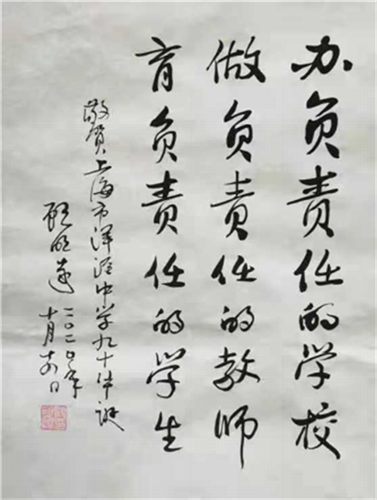 办负责任的学校
做负责任的教师
育负责任的学生
敬贺上海市洋泾中学九十华诞
顾明远
二〇二〇年
十月十五日